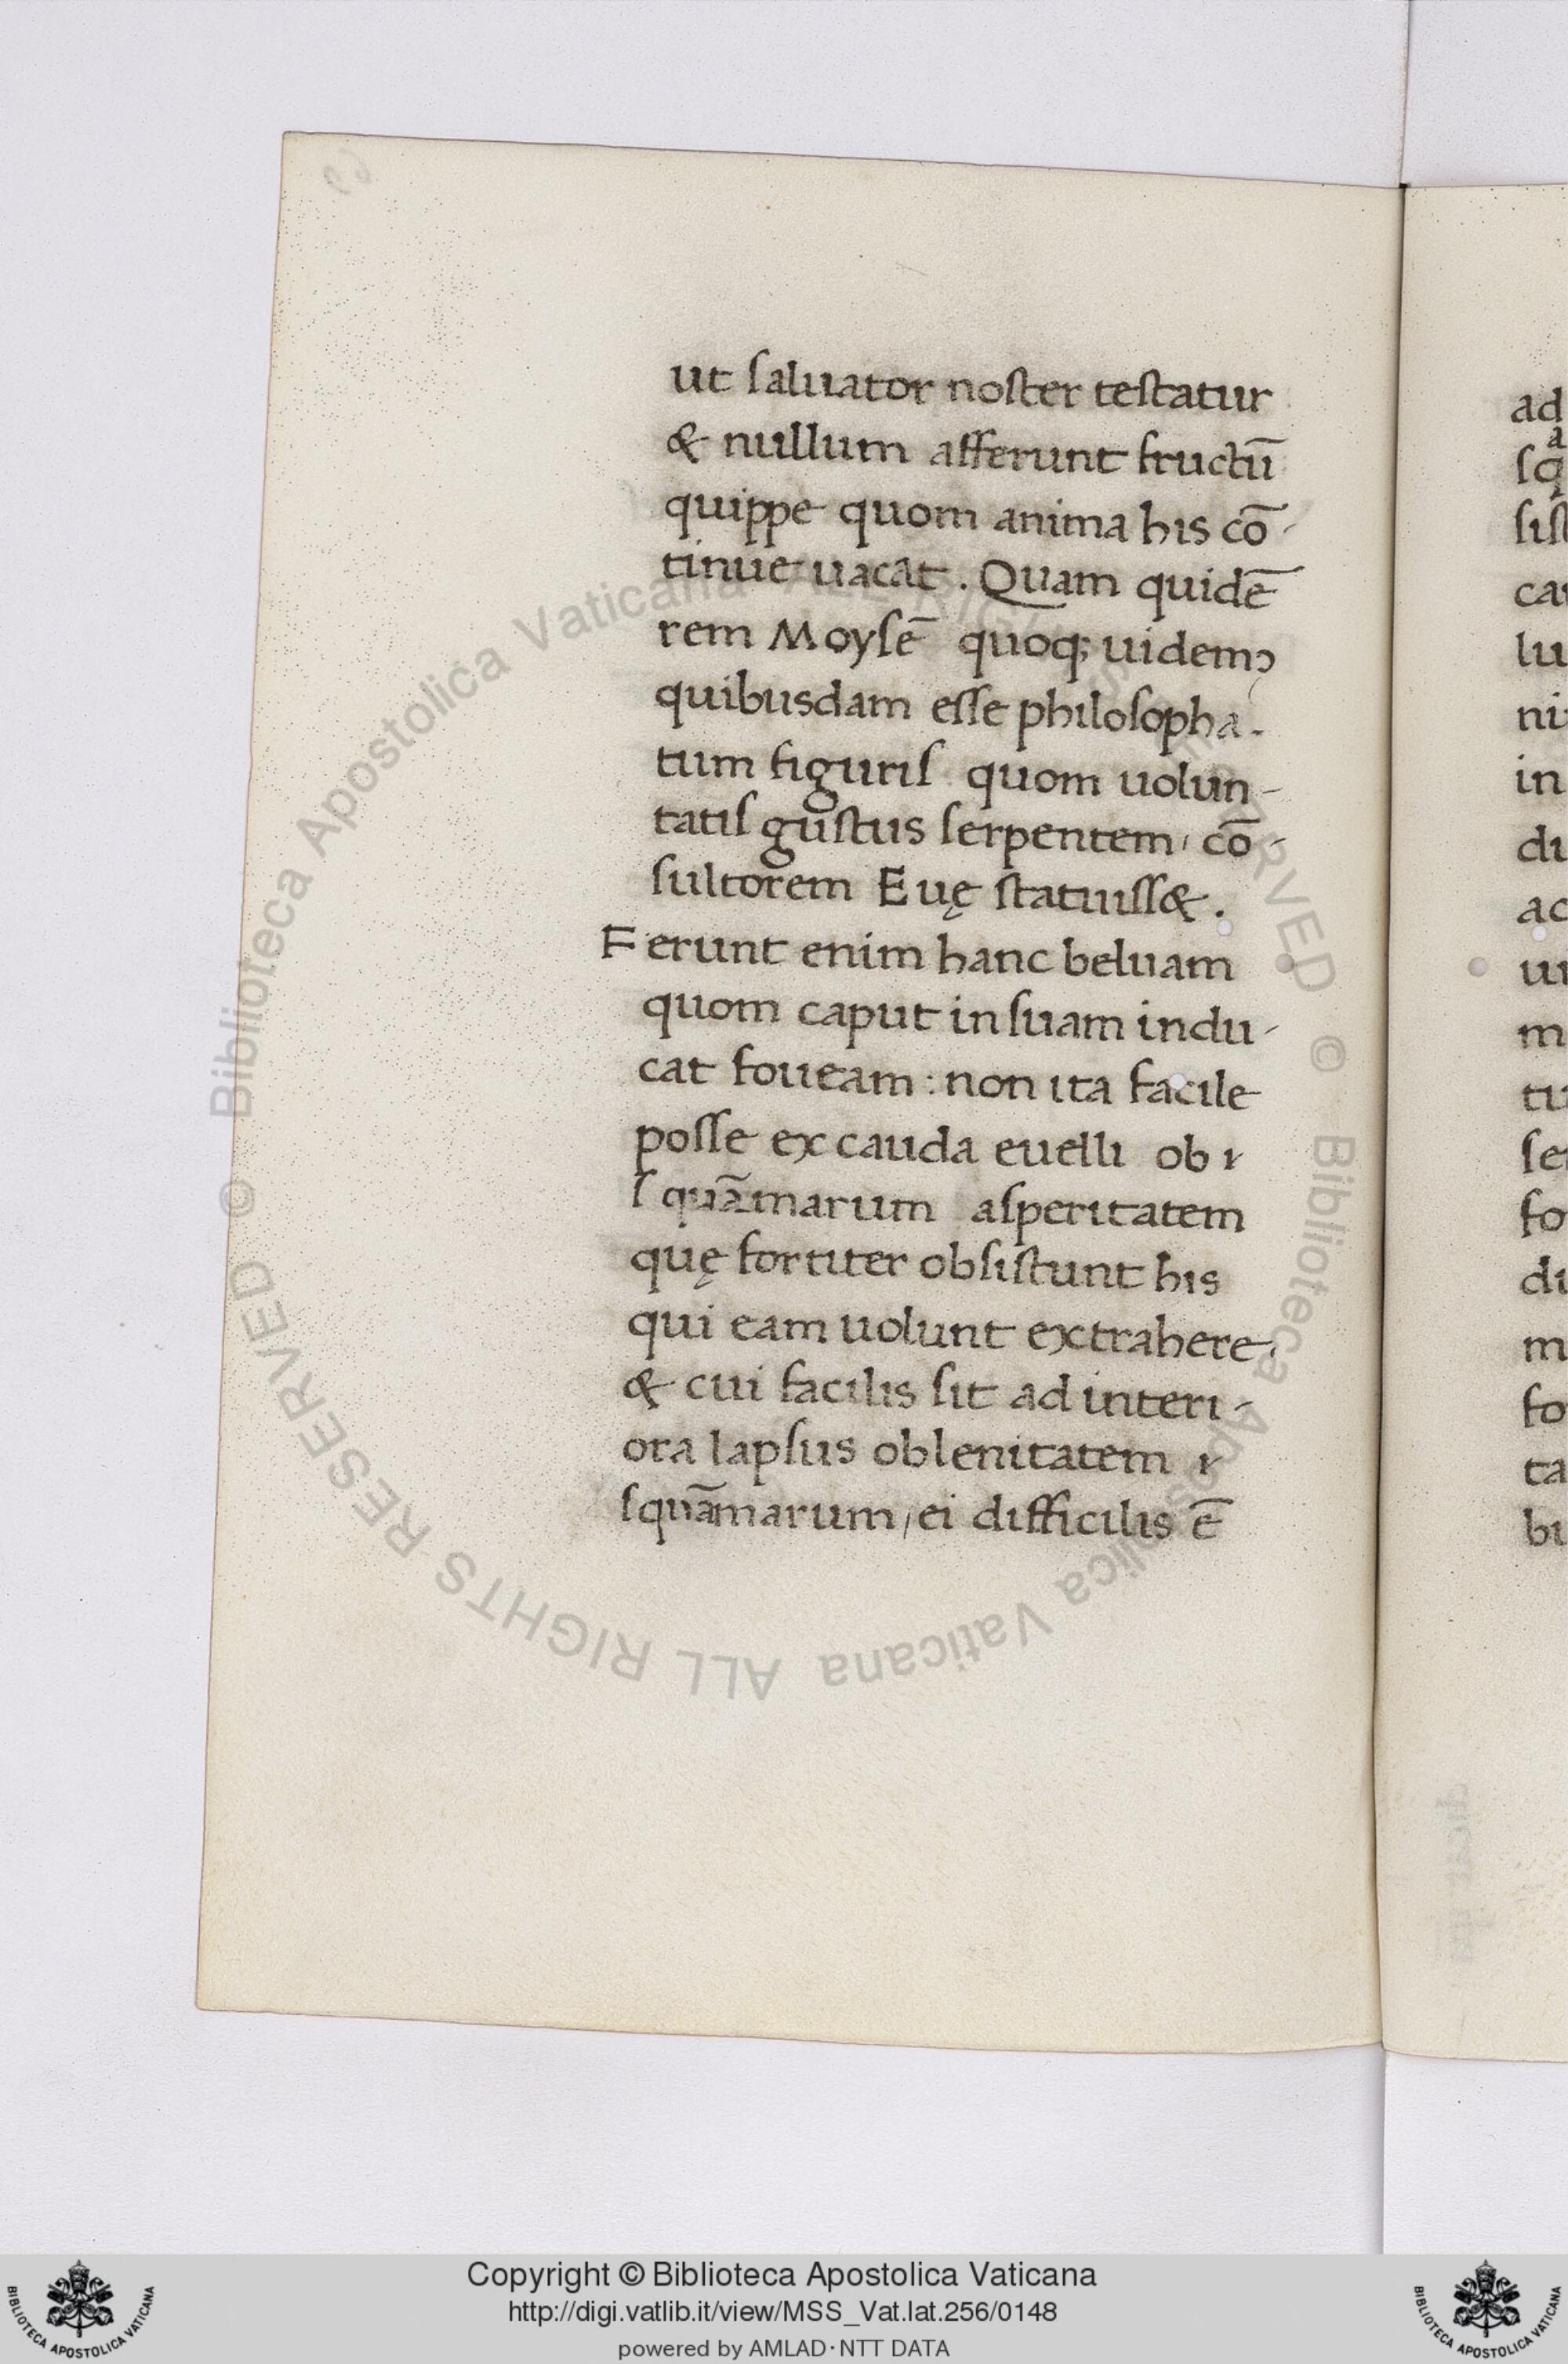 ut ſaluator noſter teſtatur
& nullum afferunt fructū
quippe quom anima his cō-
tinue uacat. Quam quidē
rem Moyſē quoq; uidemꝰ
quibusdam eſſe philoſopha-
tum figuriſ quom uolun-
tatiſ guſtus ſerpentem, cō-
ſultorem Euę ſtatuiſſ&.
Ferunt enim hanc beluam
quom caput in ſuam indu-
cat foueam: non ita facile
poſſe ex cauda euelli ob
ſquāmarum aſperitatem
quę fortiter obſiſtunt his
qui eam uolunt extrahere,
& cui facilis ſit ad interi-
ora lapſus ob lenitatem
ſquāmarum, ei difficilis ē
ad
ſiſt
lu
in
ac
ſe
fo
m
fo
ta
bi
© Biblioteca Apostolica Vaticana ALL RIGHTS RESERVED
© Biblioteca Apostolica Vaticana ALL RIGHTS RESERVED
Copyright © Biblioteca Apostolica Vaticana
http://digi.vatlib.it/view/MSS_Vat.lat.256/0148
powered by AMLAD·NTT DATA
BIBLIOTECA APOSTOLICA VATICANA
BIBLIOTECA APOSTOLICA VATICANA